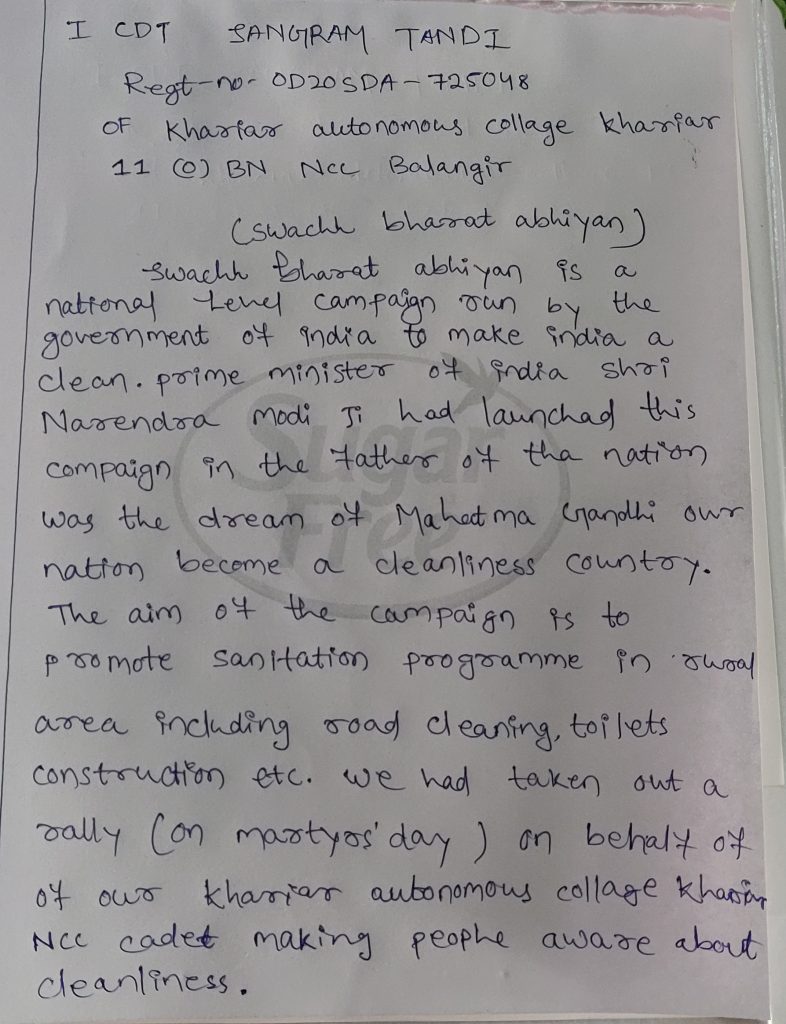 I CDT SANGRAM TANDI
Regt-no- OD20SDA-725048
OF Khariar autonomous collage khariar
11 (O) BN Ncc Balangir
(swachh bharat abhiyan)
swachh bharat abhiyan is a
national level campaign run by the
government of india to make india a
clean. prime minister of india shri
Narendra modi Ji had launchad this
compaign in the father of tha nation
was the dream of Mahatma Gandhi our
nation become a cleanliness country.
The aim of the campaign is to
promote sanitation programme in rural
area including road cleaning, toilets
construction etc. we had taken out a
rally (on martyrs' day) on behalf of
of our khariar autonomous collage khariar
NCC cadet making peophe aware about
cleanliness.
Sugar
Free